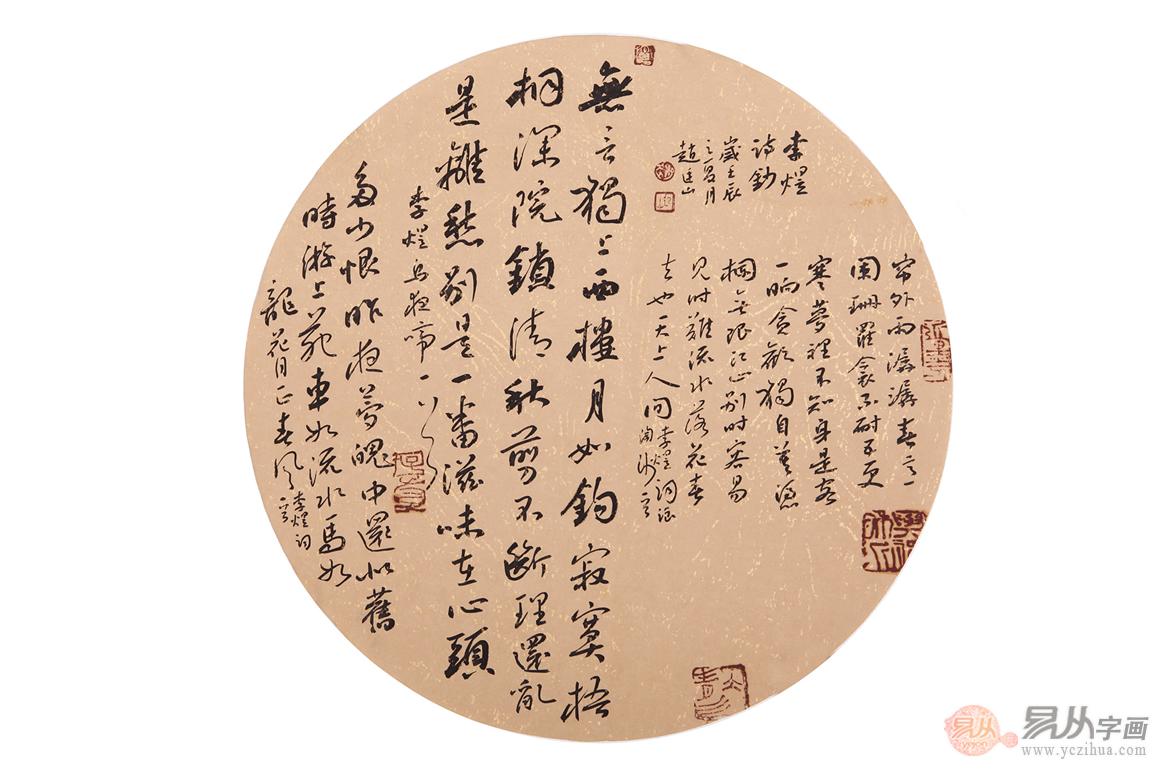 李煜
詩鈔
歲壬辰
之
月
趙廷山
帘外雨潺潺春意
闌珊羅衾不耐五更
寒夢裡不知身是客
一晌貪歡獨自莫憑
欄無限江山別時容易
見時難流水落花春
去也天上人間
李煜詞浪
淘沙
無言獨上西樓月如鉤寂寞梧
桐深院鎖清秋剪不斷理還亂
是離愁別是一番滋味在心頭
李煜烏夜啼一
多少恨昨夜夢魂中還似舊
時游上苑車如流水馬如
龍花月正春風
李煜詞
易从
易从字画
www.yczihua.com